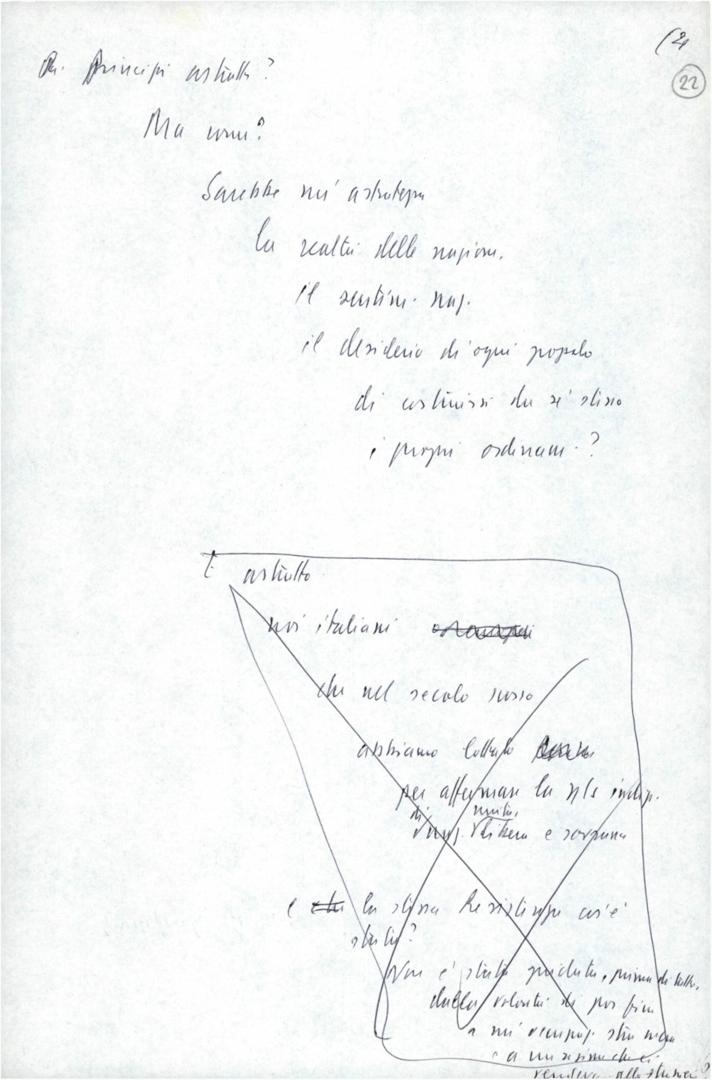 (21
22
Pr. Principi astratti?
Ma come?
Sarebbe un'astrattezza
la realtà delle nazioni.
il sentim. naz.
il desiderio di ogni popolo
di costruirsi da sé stesso
i propri ordinam.?
È astratto
noi italiani
che nel secolo scorso
abbiamo lottato
per affermare la ns indip.
di naz. unita, libera e sovrana
e che la stessa Resistenza cos'è
stata?
Non è stata guidata, prima di tutto,
dalla volontà di por fine
a un'occupaz. straniera
e a un regime che ci
vendeva allo straniero?